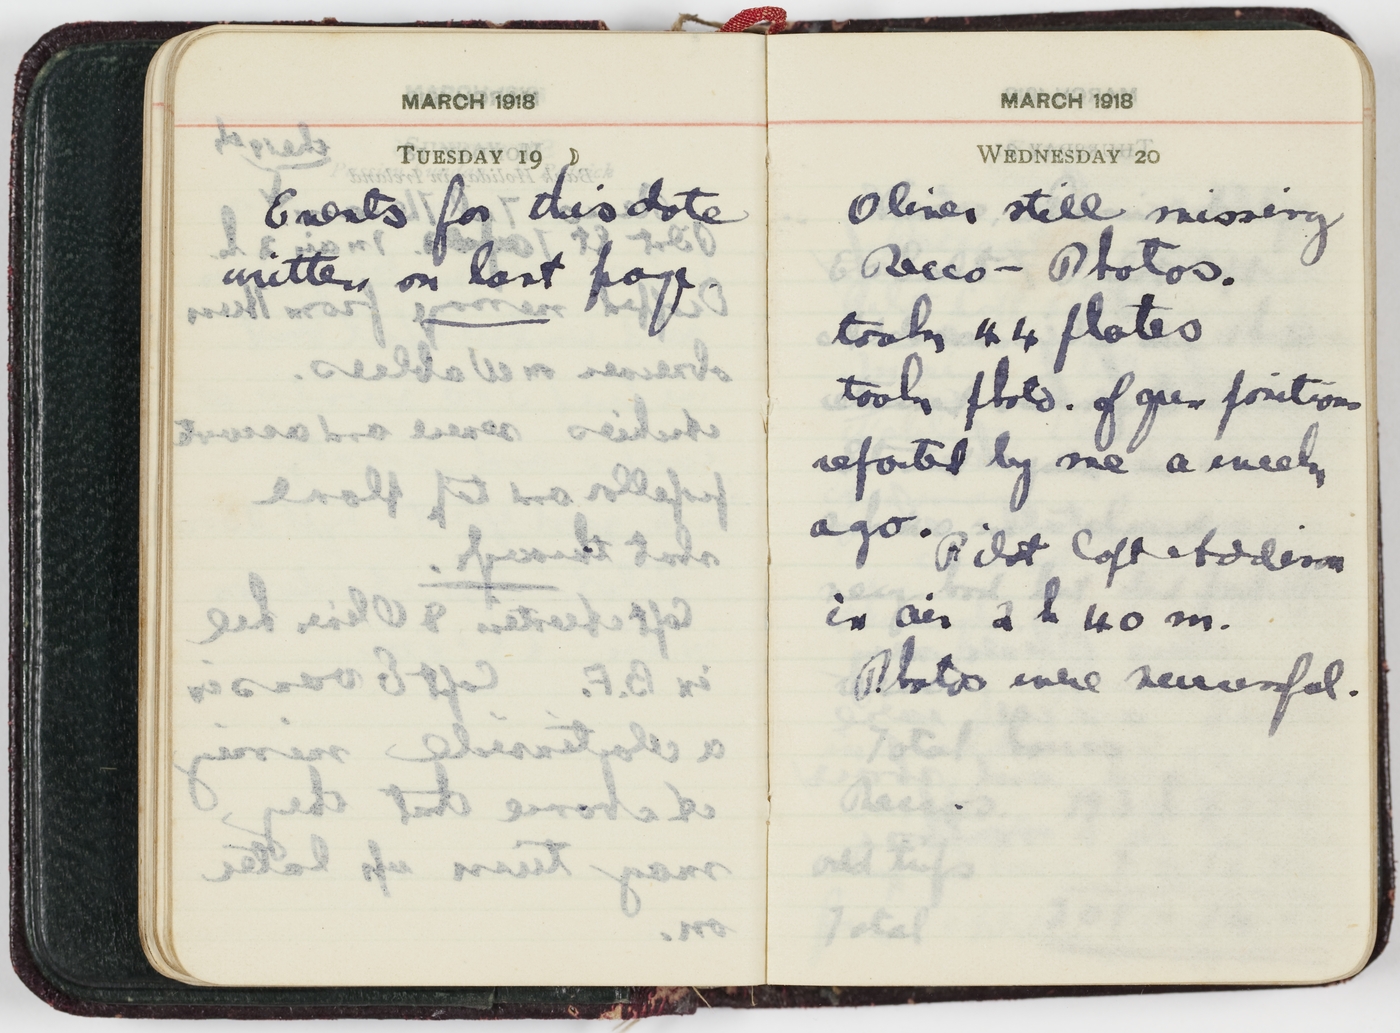 MARCH 1918
TUESDAY 19
Events for this date
written on last page
MARCH 1918
WEDNESDAY 20
Oliver still missing
Recco - Photos.
took 44 plates
took photo. of gun positions
reported by me a week
ago. Pilot Capt Addison
in air 2 h 40 m.
Photos were successful.